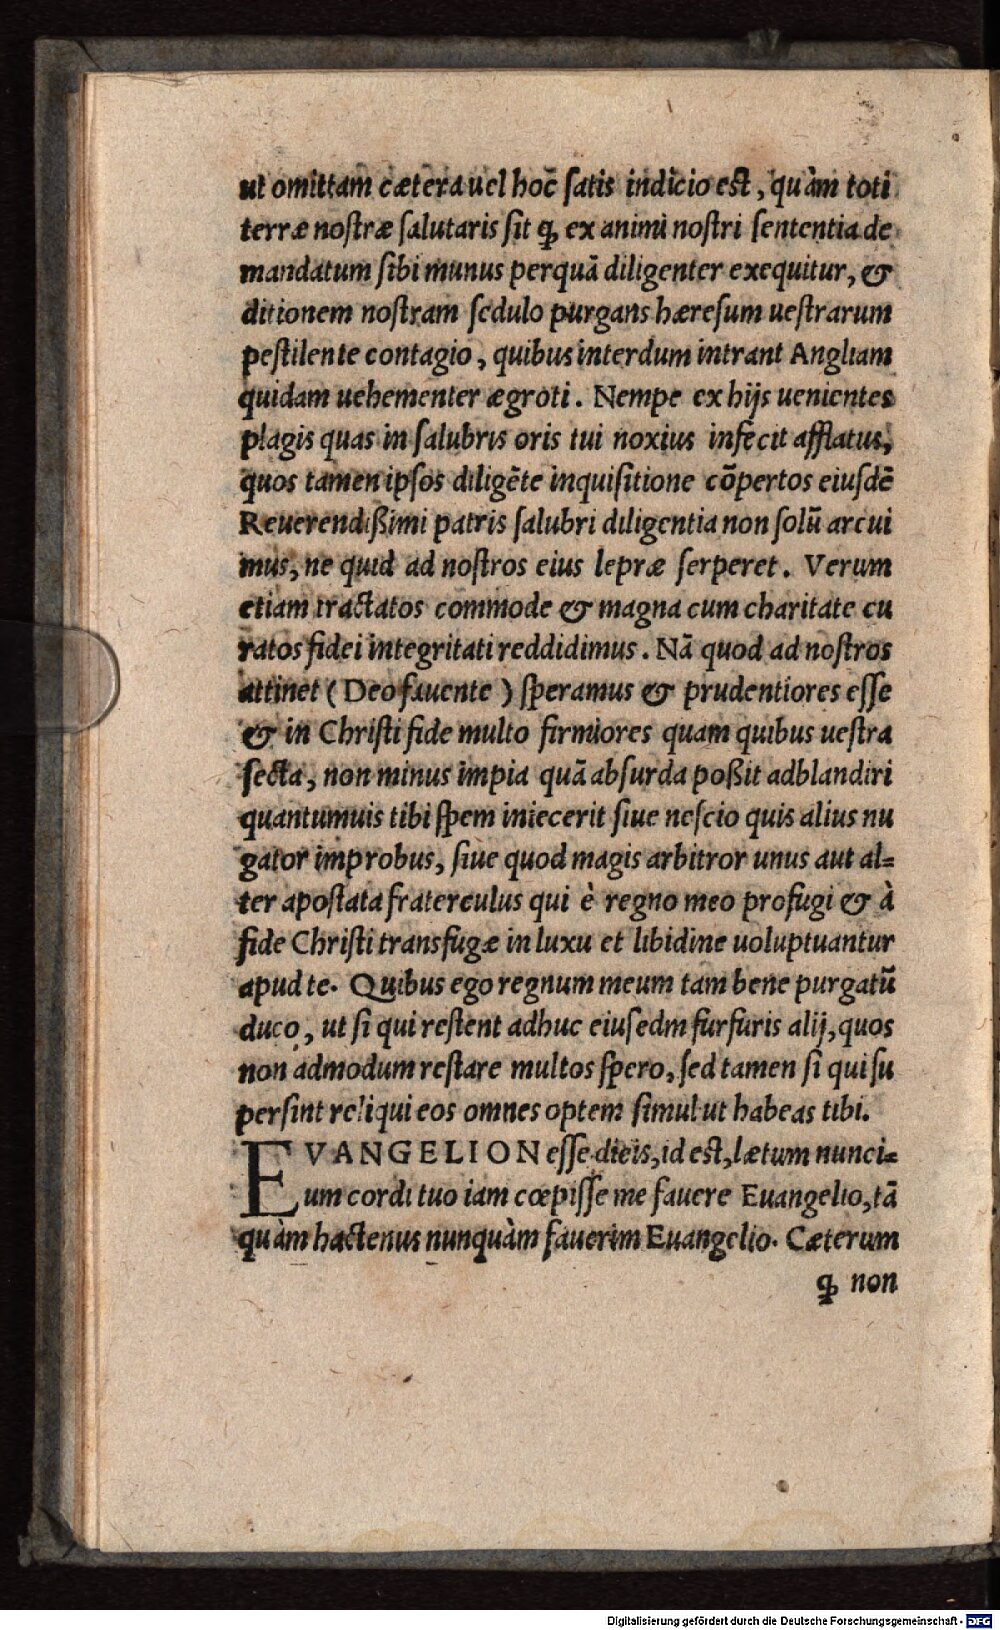 ut omittam cætera uel hoc satis indicio est, quàm toti
terræ nostræ salutaris sit ꝙ ex animi nostri sententia de
mandatum sibi munus perquã diligenter exequitur, &
ditionem nostram sedulo purgans hæresum uestrarum
pestilente contagio, quibus interdum intrant Angliam
quidam uehementer ægroti. Nempe ex hijs uenientes
plagis quas in salubris oris tui noxius infecit afflatus,
quos tamen ipsos diligẽte inquisitione cõpertos eiusdẽ
Reuerendißimi patris salubri diligentia non solũ arcui
mus, ne quid ad nostros eius lepræ serperet. Verum
etiam tractatos commode & magna cum charitate cu
ratos fidei integritati reddidimus. Nã quod ad nostros
attinet (Deo fauente) speramus & prudentiores esse
& in Christi fide multo firmiores quam quibus uestra
secta, non minus impia quã absurda poßit adblandiri
quantumuis tibi spem iniecerit siue nescio quis alius nu
gator improbus, siue quod magis arbitror unus aut al=
ter apostata fraterculus qui è regno meo profugi & à
fide Christi transfugæ in luxu et libidine uoluptuantur
apud te. Quibus ego regnum meum tam bene purgatũ
duco, ut si qui restent adhuc eiusedm furfuris alij, quos
non admodum restare multos spero, sed tamen si qui su
persint reliqui eos omnes optem simul ut habeas tibi.
EVANGELION esse dicis, id est, lætum nunci=
um cordi tuo iam cœpisse me fauere Euangelio, tã
quàm hactenus nunquàm fauerim Euangelio. Cæterum
ꝙ non
Digitalisierung gefördert durch die Deutsche Forschungsgemeinschaft - DFG